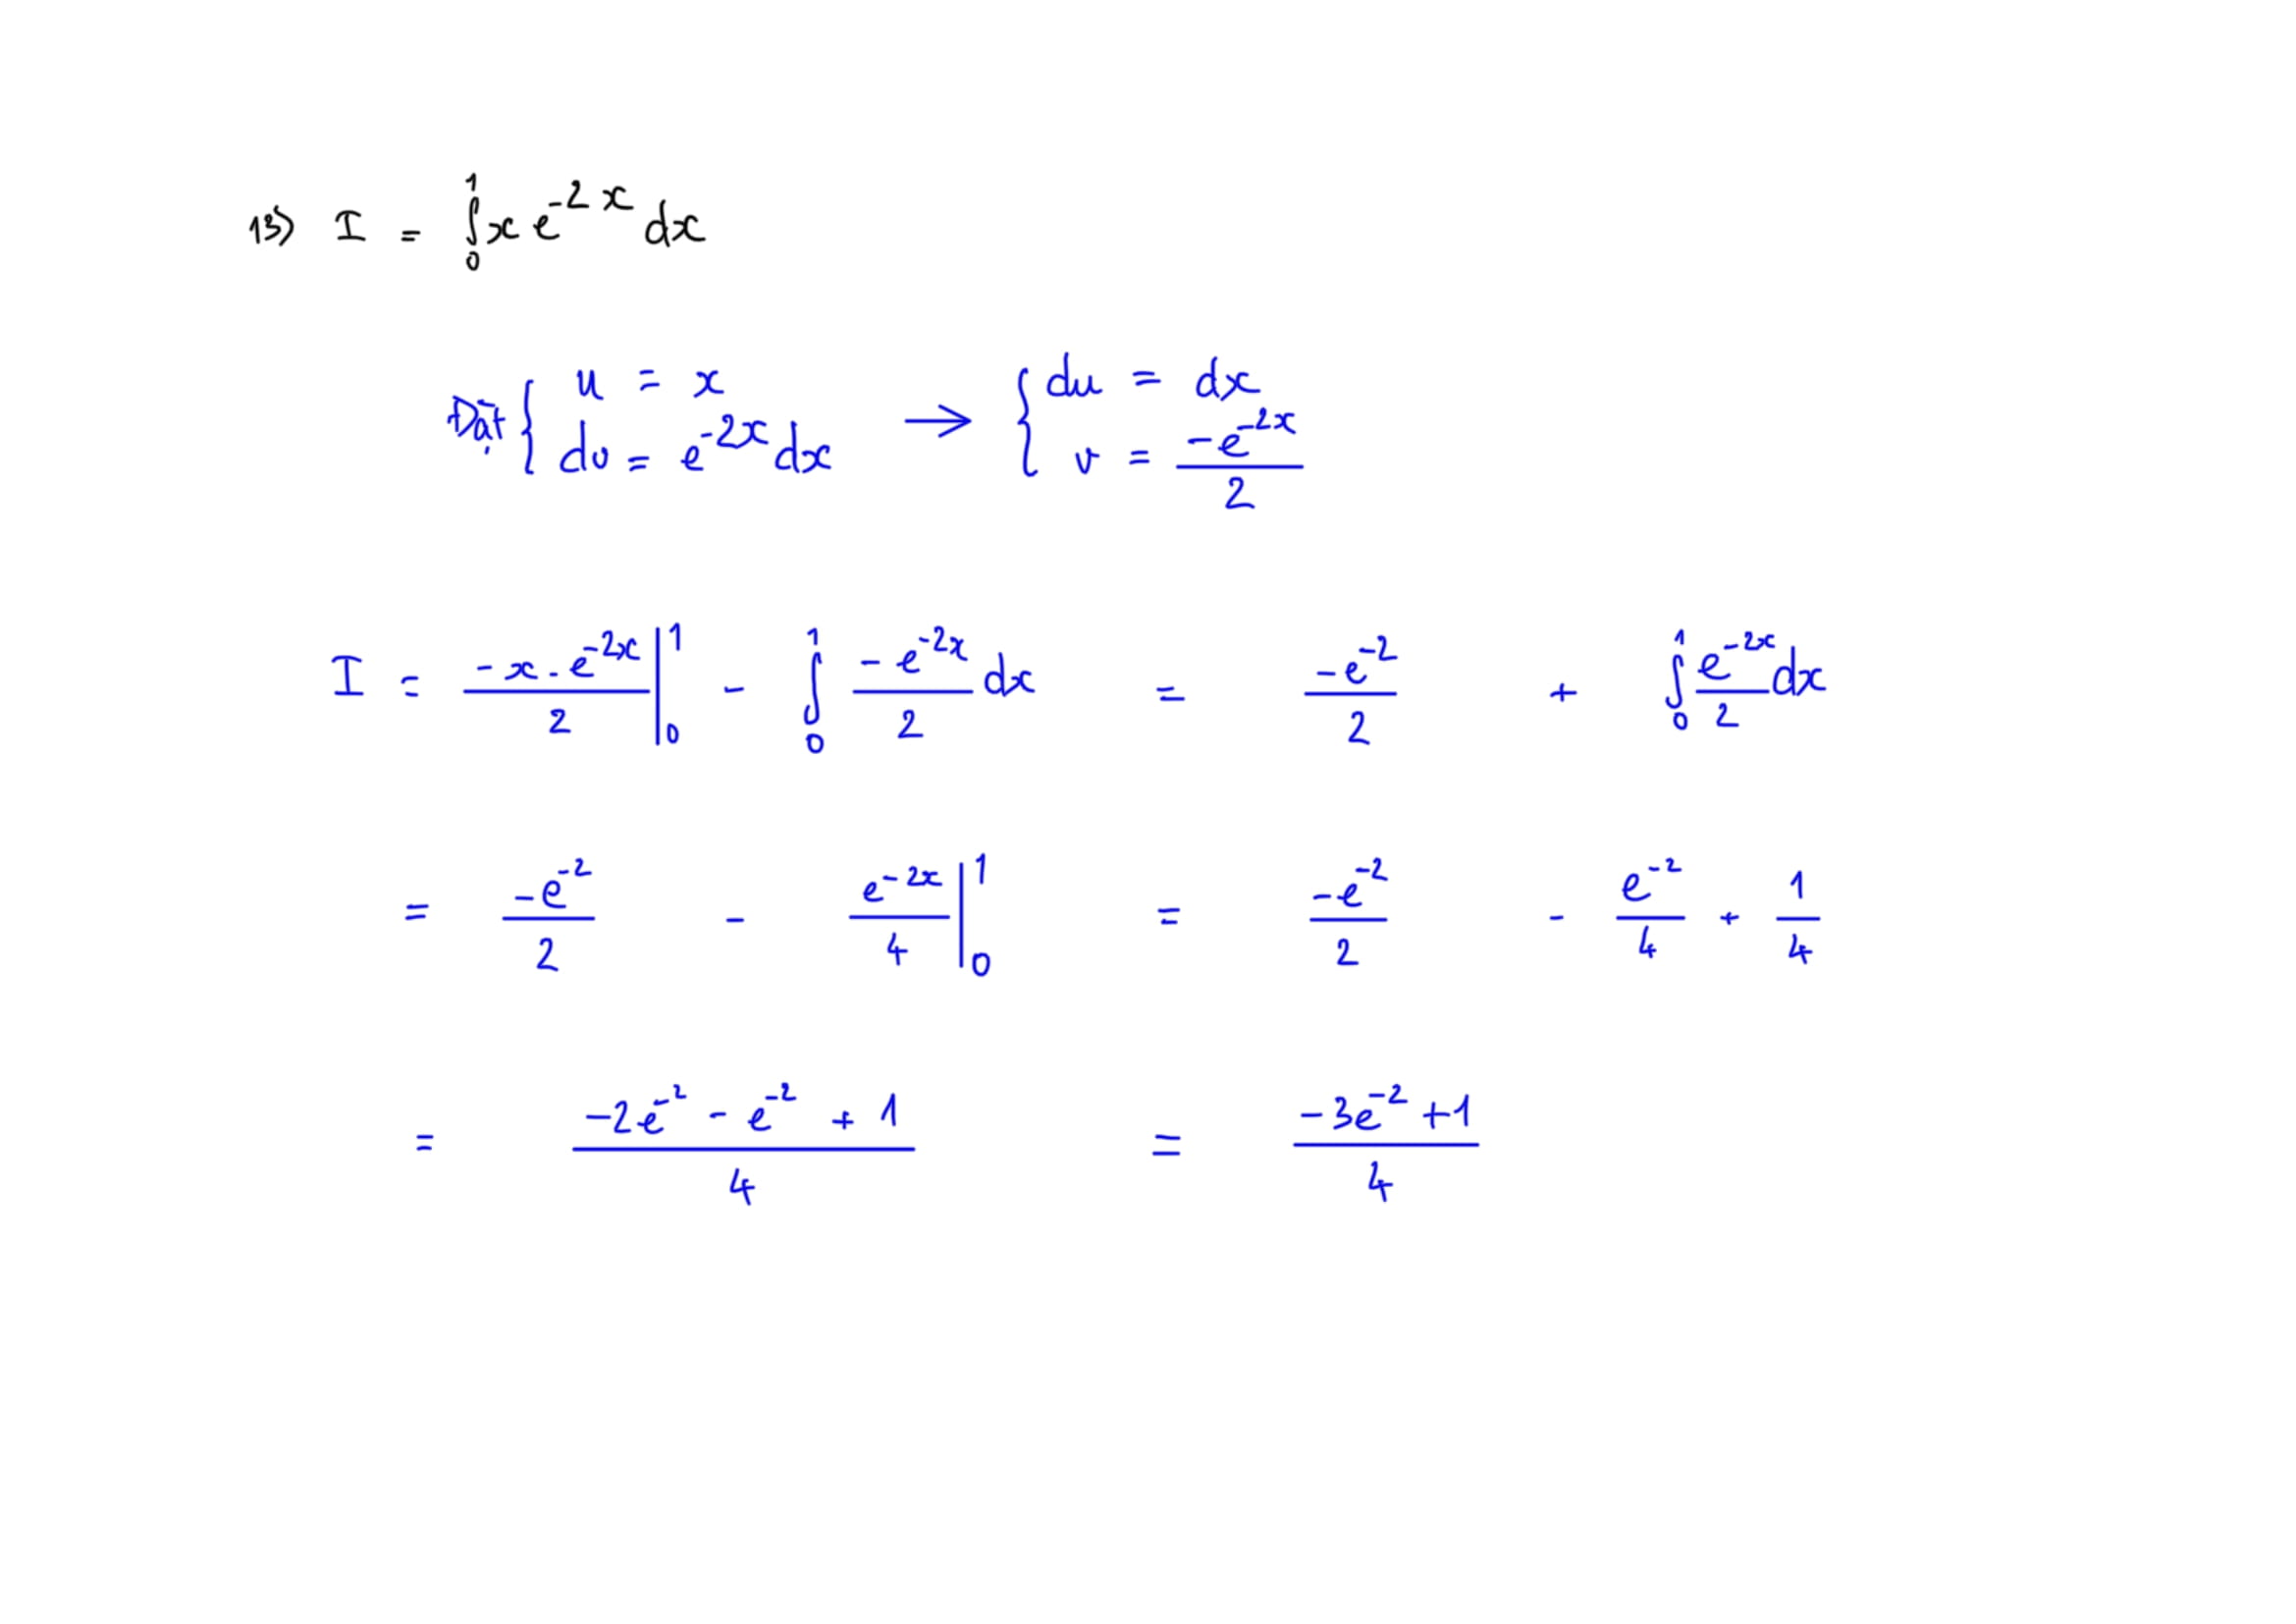 13) I = ∫₀¹ x e^{-2x} dx
Đặt { u = x → { du = dx
dv = e^{-2x} dx v = \frac{-e^{-2x}}{2}
I = \frac{-x.e^{-2x}}{2} |₀¹ - ∫₀¹ \frac{-e^{-2x}}{2} dx = \frac{-e^{-2}}{2} + ∫₀¹ \frac{e^{-2x}}{2} dx
= \frac{-e^{-2}}{2} - \frac{e^{-2x}}{4} |₀¹ = \frac{-e^{-2}}{2} - \frac{e^{-2}}{4} + \frac{1}{4}
= \frac{-2e^{-2} - e^{-2} + 1}{4} = \frac{-3e^{-2} + 1}{4}